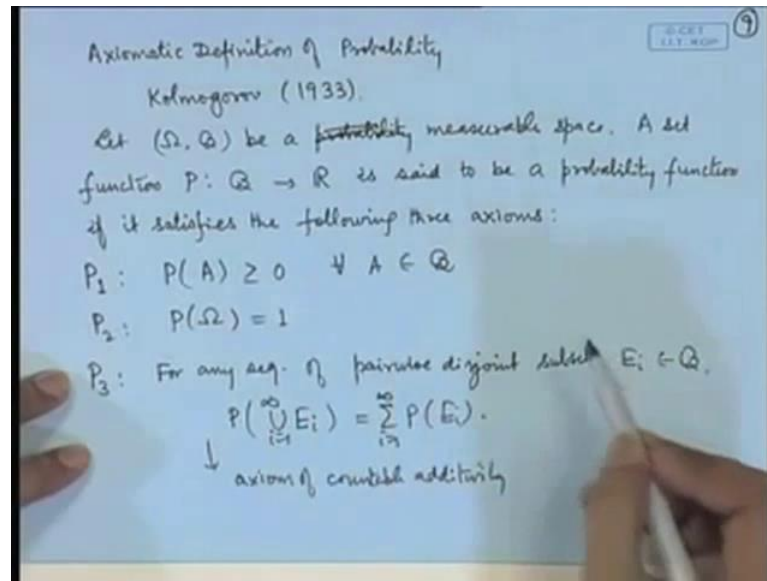 9
Axiomatic Definition of Probability
Kolmogorov (1933).
Let (Ω, B) be a probability measurable space. A set
function P: B → R is said to be a probability function
if it satisfies the following three axioms:
P₁: P(A) ≥ 0 ∀ A ∈ B
P₂: P(Ω) = 1
P₃: For any seq. of pairwise disjoint subsets Eᵢ ∈ B,
P(∞⋃i=1 Eᵢ) = ∞∑i=1 P(Eᵢ).
↓
axiom of countable additivity